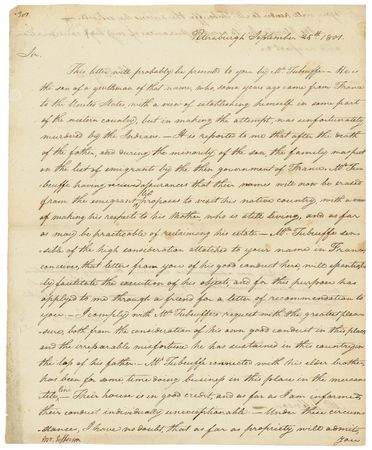 Petersburgh September 25th. 1801.
Sir.
This letter will probably be presented to you by Mr. Tubeuffe - He is
the son of a gentleman of that name, who some years ago came from France
to the United States with a view of establishing himself in some part
of the western country, but in making the attempt, was unfortunately
murdered by the Indians. - It is reported to me that after the death
of the father, and during the minority of the son, the family was put
on the list of emigrants by the then government of France. Mr. Tu-
beuffe having received assurances that their names will now be erased
from the emigrant list proposes to visit his native country, with a view
of making his respects to his Mother, who is still living, and as far
as may be practicable of reclaiming his estate - Mr. Tubeuffe sen-
sible of the high consideration attached to your name in France,
conceives, that letters from you of his good conduct here, will essential-
ly facilitate the execution of his objects, and for this purpose has
applied to me through a friend for a letter of recommendation to
you. - I comply with Mr. Tubeuffe's request with the greatest plea-
sure, both from the consideration of his own good conduct in this place
and the irreparable misfortune he has sustained in this country in
the loss of his father. - Mr. Tubeuffe connected with his elder brother,
has been for some time doing business in this place in the mercan-
tile line, - Their house is in good credit, and as far as I am informed
their conduct individually unexceptionable - Under these circum-
stances, I have no doubt, that as far as propriety will admit,
Mr. Jefferson
you